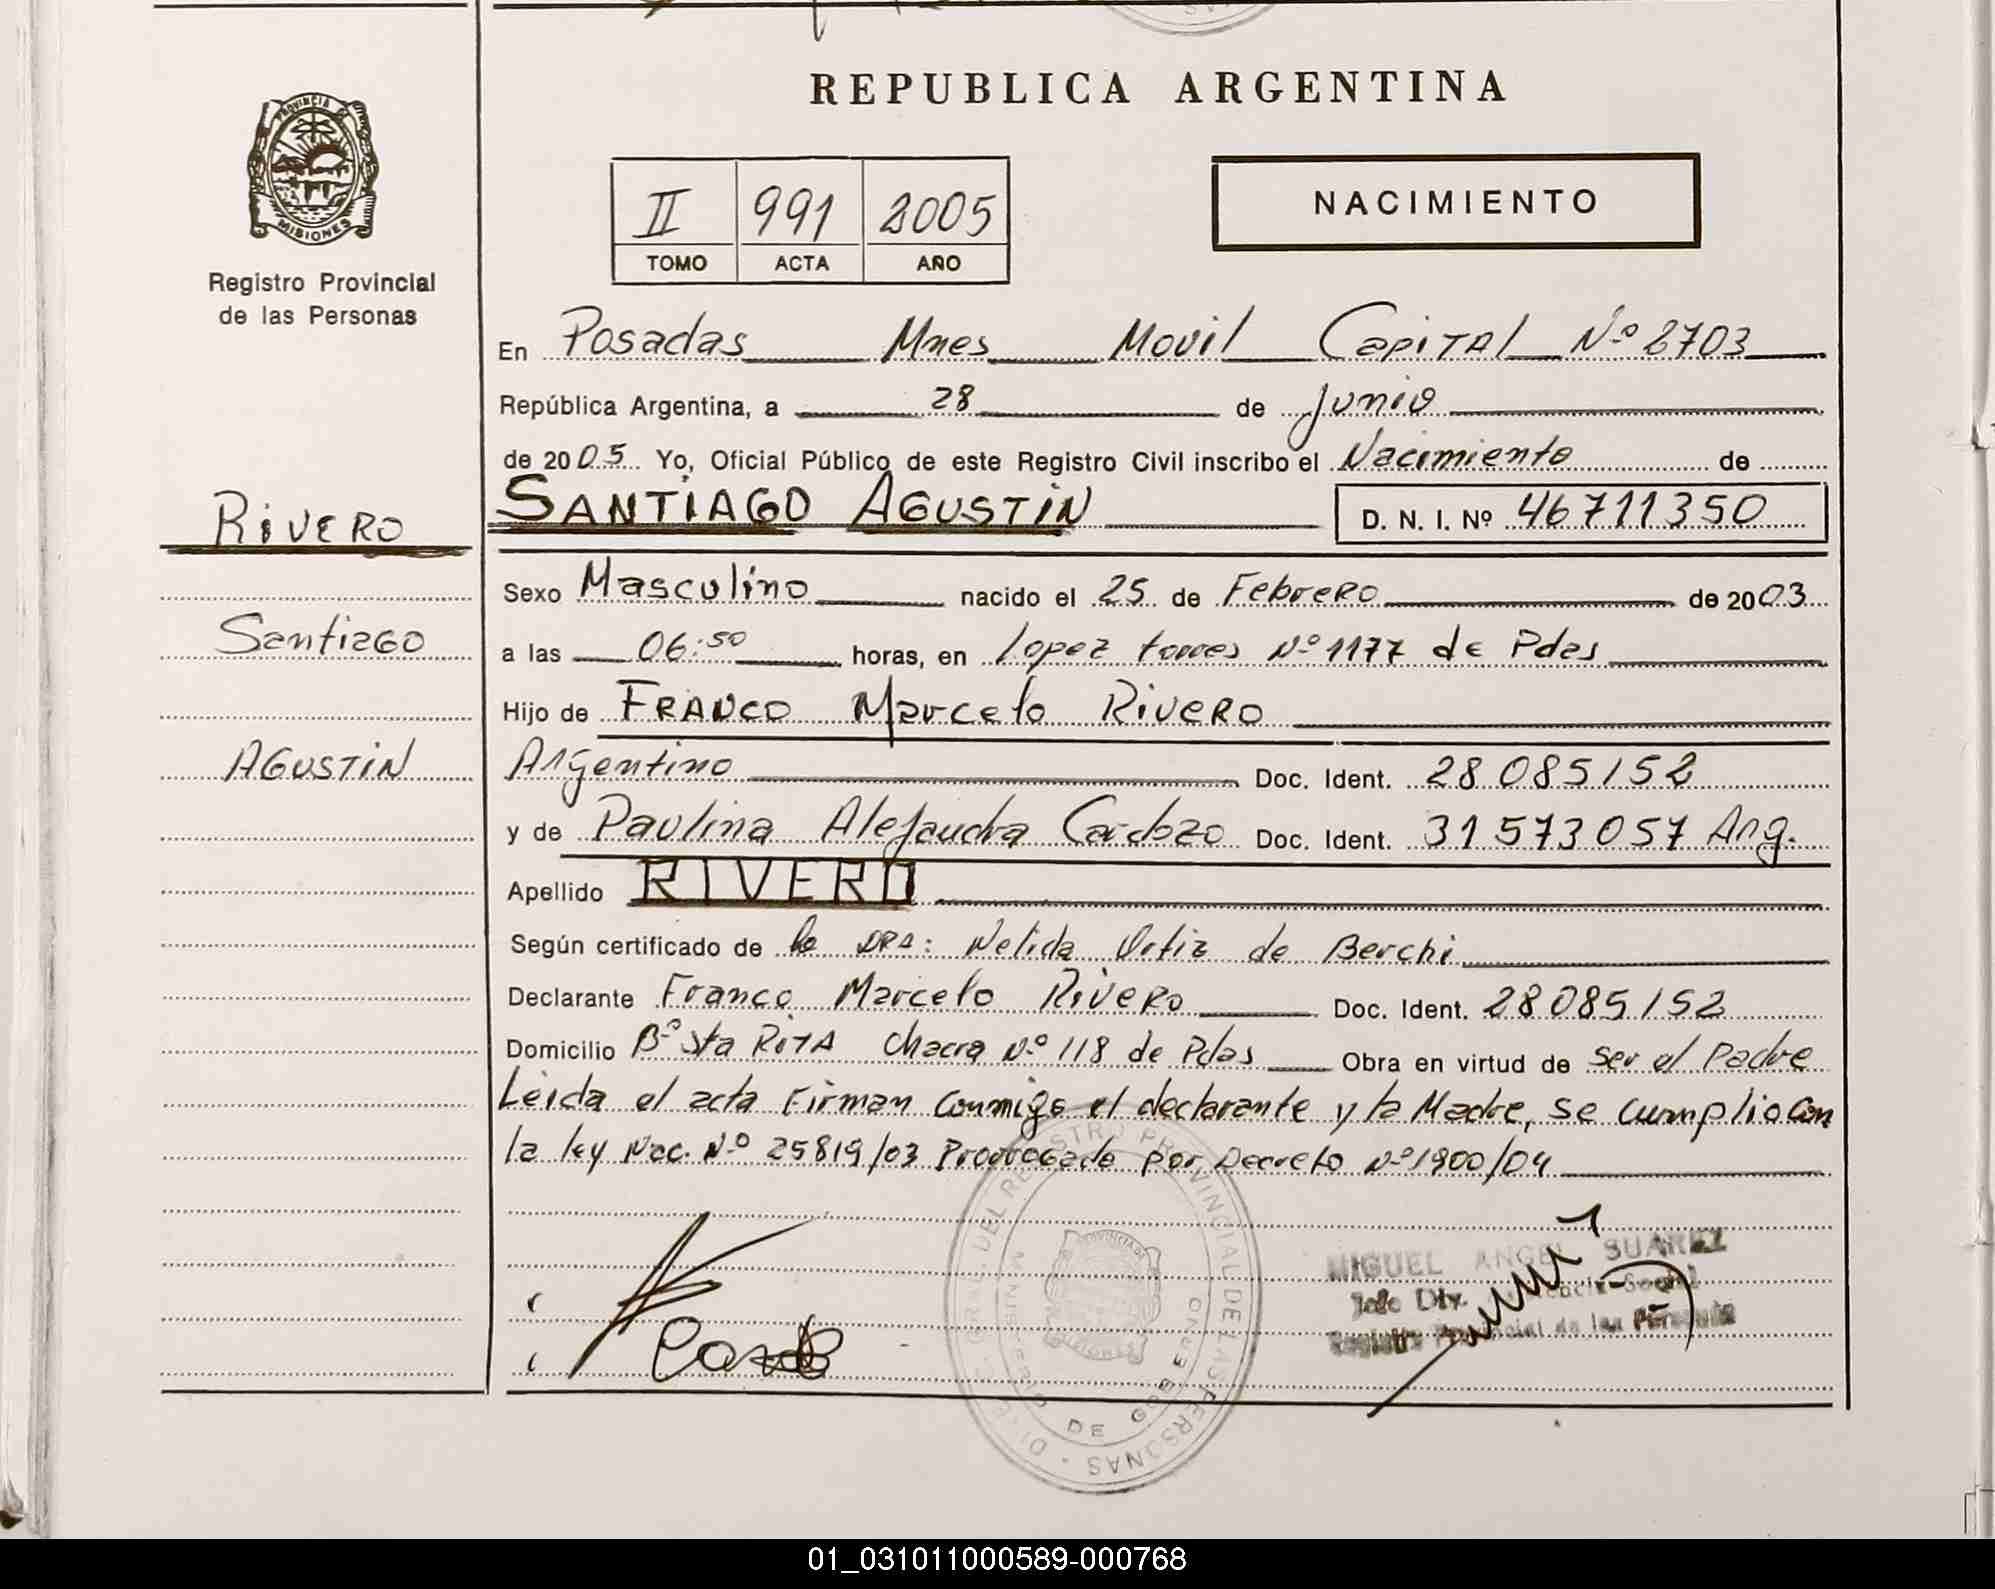 REPUBLICA ARGENTINA
PROVINCIA
MISIONES
Registro Provincial
de las Personas
II 991 2005
TOMO ACTA AÑO
NACIMIENTO
En Posadas Mnes Movil Capital Nº 2703
República Argentina, a 28 de Junio
de 2005 Yo, Oficial Público de este Registro Civil inscribo el Nacimiento de
RIVERO
SANTIAGO AGUSTIN D. N. I. Nº 46711350
Sexo Masculino nacido el 25 de Febrero de 2003
Santiago
a las 06:50 horas, en Lopez torres Nº 1177 de Pdas
Hijo de FRANCO Marcelo RIVERO
AGUSTIN
Argentino Doc. Ident. 28085152
y de Paulina Alejandra Cardozo Doc. Ident. 31573057 Arg.
Apellido RIVERO
Según certificado de la DRA: Nelida Ortiz de Berchi
Declarante Franco Marcelo Rivero Doc. Ident. 28085152
Domicilio Bº Sta Rita Chacra Nº 118 de Pdas Obra en virtud de ser el Padre
Leida el acta Firman Conmigo el declarante y la Madre, se cumplio con
la ley Nac. Nº 25819/03 Prorrogada por Decreto Nº 1900/04
MIGUEL ANGEL SUAREZ
Jefe Div.
Registro Provincial de las Personas
GRAL. DEL REGISTRO PROVINCIAL DE LAS PERSONAS
MINISTERIO DE GOBIERNO
01_031011000589-000768